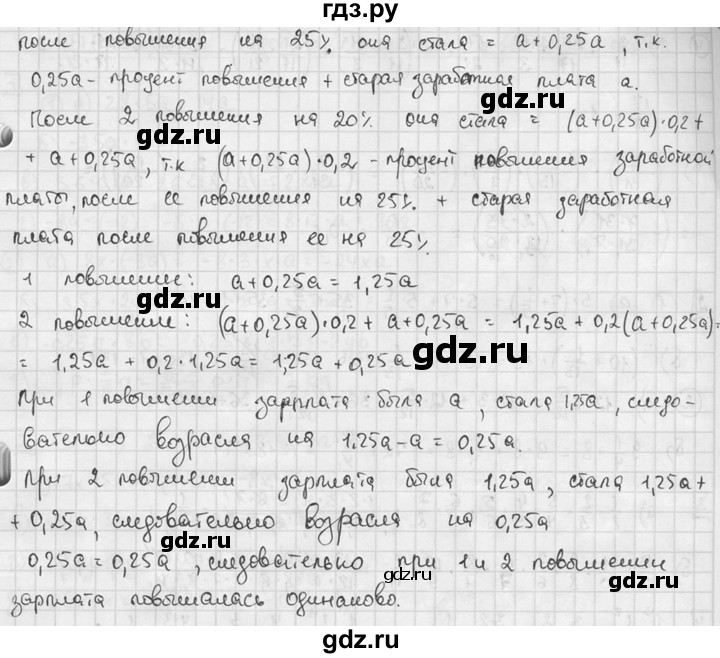 гдз.ру
после повышения на 25% она стала = a+0,25a, т.к.
0,25a - процент повышения + старая заработная плата a.
После 2 повышения на 20% она стала = (a+0,25a)·0,2+
+ a+0,25a, т.к (a+0,25a)·0,2 - процент повышения заработной
платы, после ее повышения на 25% + старая заработная
плата после повышения ее на 25%
1 повышение: a+0,25a = 1,25a
2 повышение: (a+0,25a)·0,2 + a+0,25a = 1,25a + 0,2(a+0,25a)=
= 1,25a + 0,2·1,25a = 1,25a + 0,25a
При 1 повышении зарплата была a, стала 1,25a, следо-
вательно возрасла на 1,25a-a = 0,25a.
При 2 повышении зарплата была 1,25a, стала 1,25a+
+ 0,25a, следовательно возрасла на 0,25a
0,25a = 0,25a, следовательно при 1 и 2 повышении
зарплата повышалась одинаково.
gdz.ru
gdz.ru
gdz.ru
gdz.ru
gdz.ru
gdz.ru
gdz.ru
gdz.ru
gdz.ru